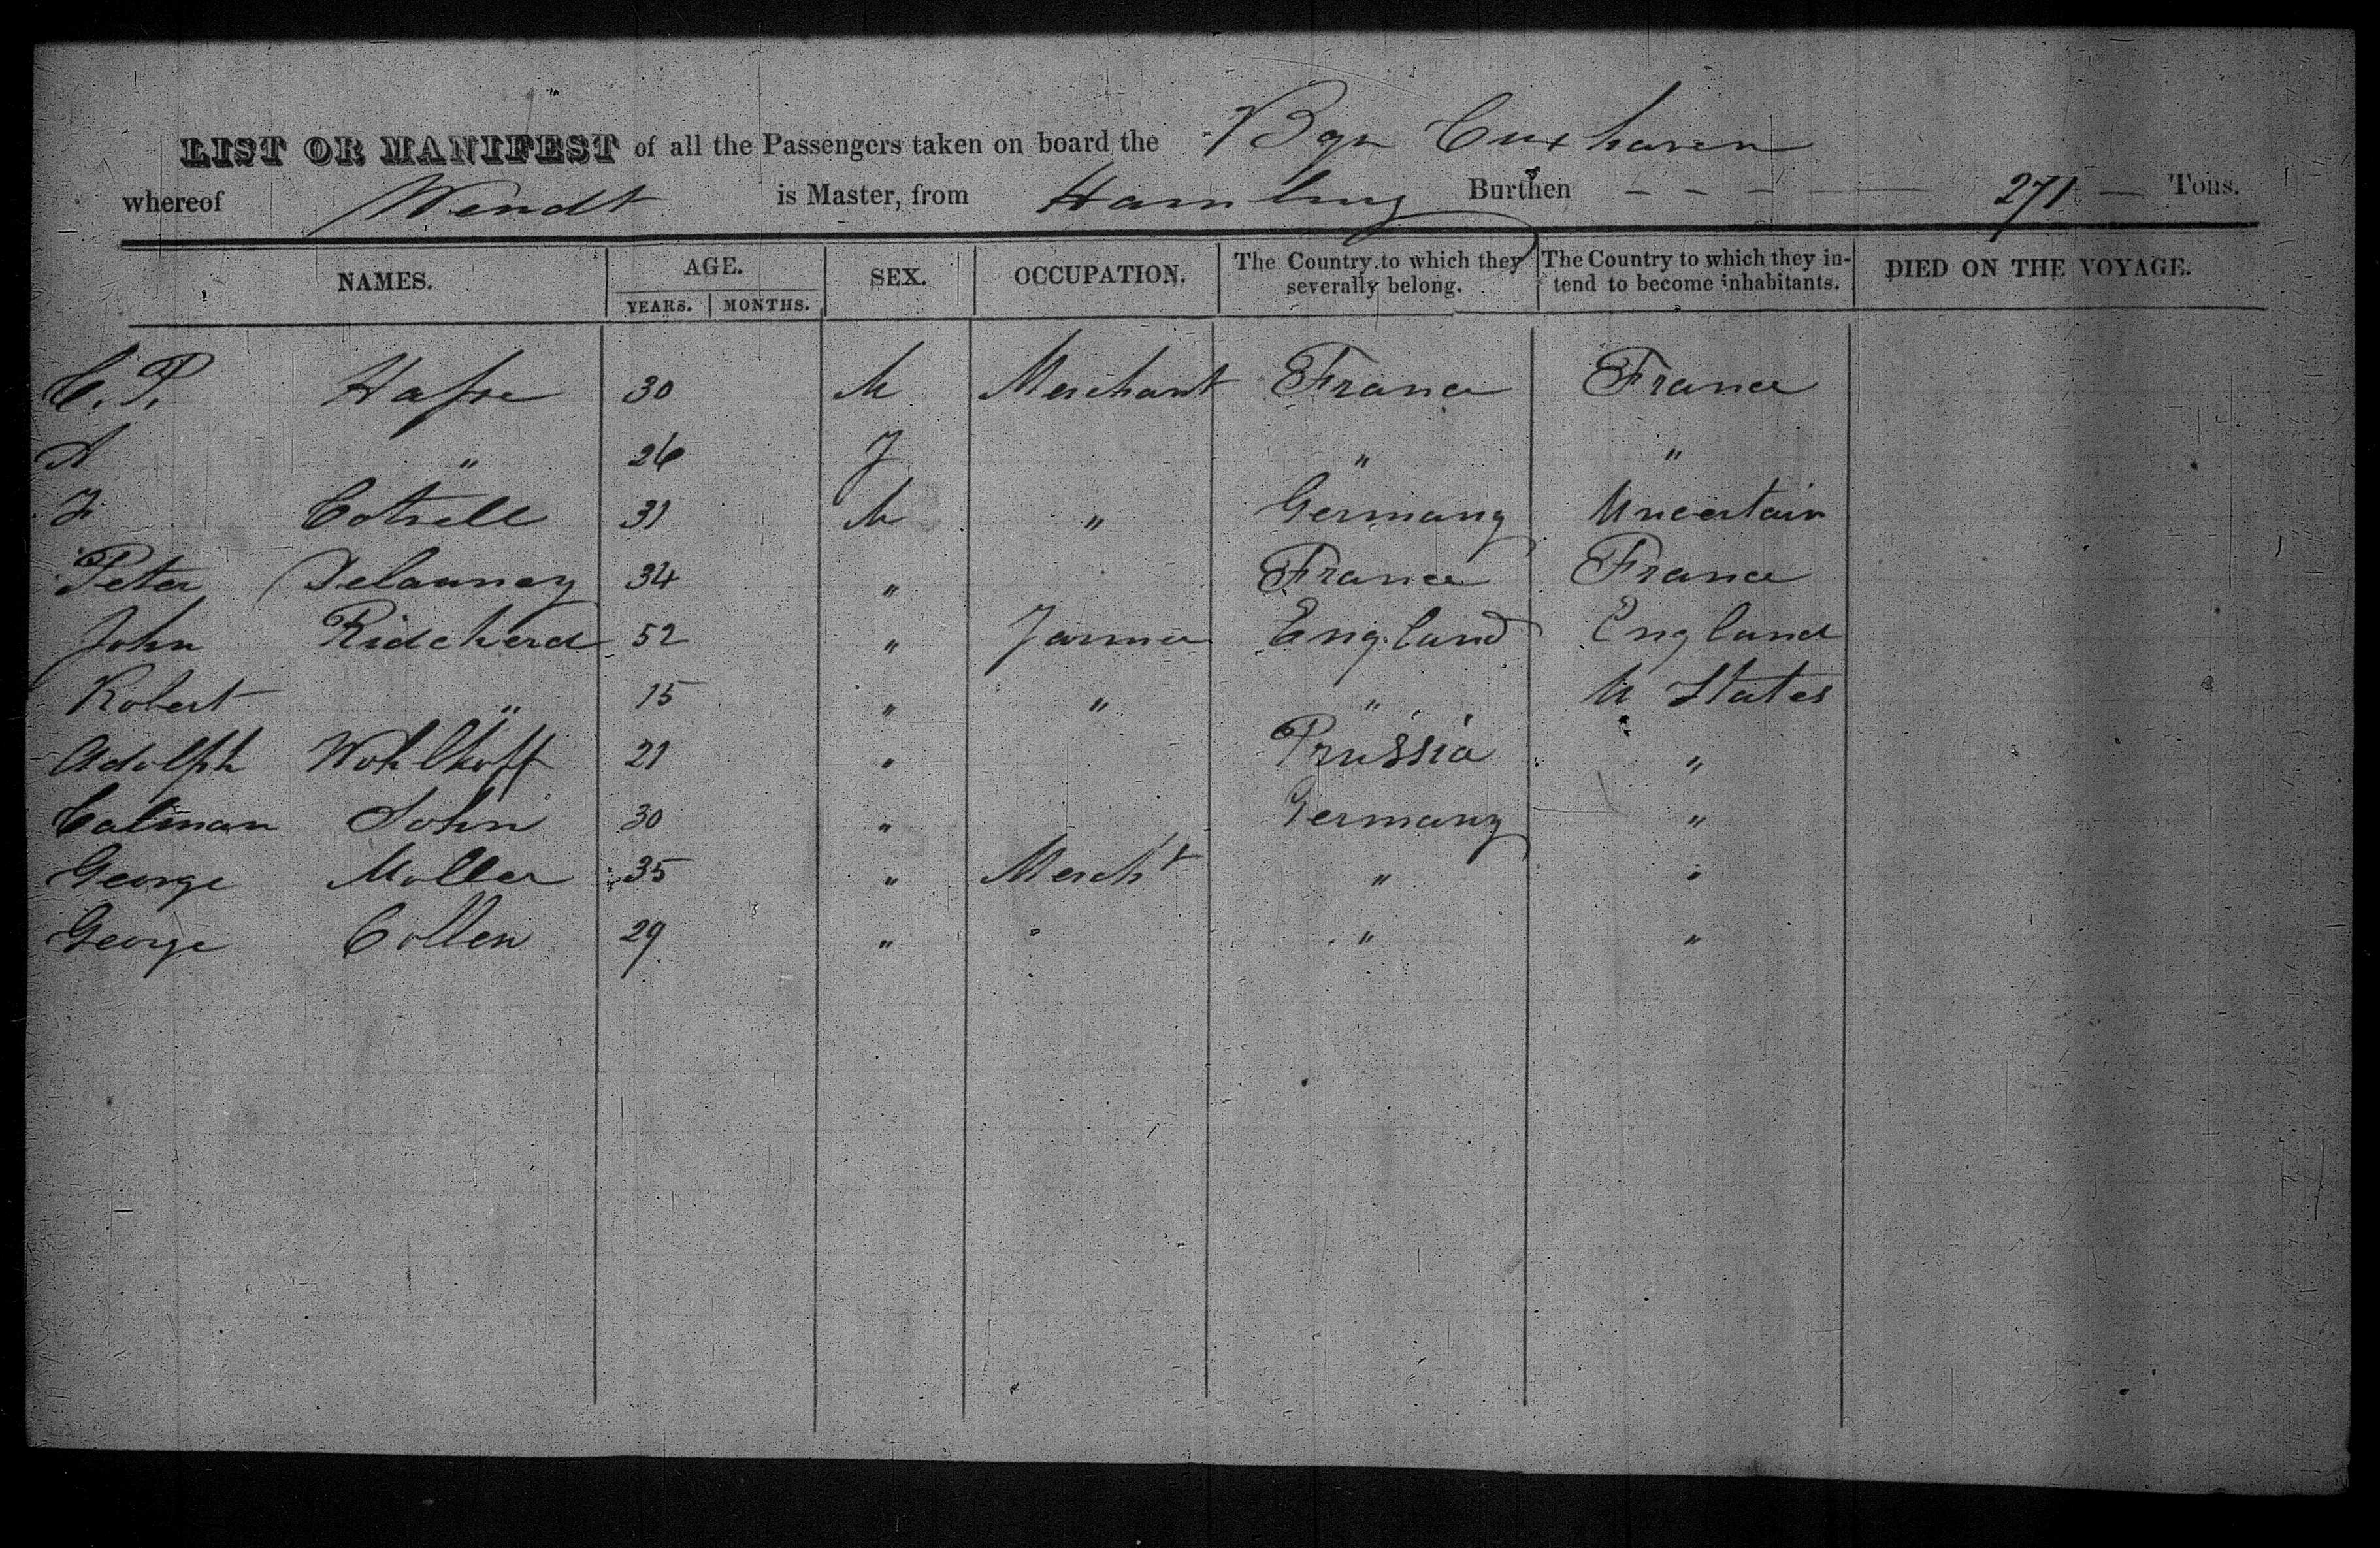 LIST OR MANIFEST of all the Passengers taken on board the Bgn Cuxhaven
whereof Wendt is Master, from Hamburg Burthen - - - — 271 — Tons.
NAMES. AGE. SEX. OCCUPATION. The Country to which they severally belong. The Country to which they intend to become inhabitants. DIED ON THE VOYAGE.
YEARS. MONTHS.
C. P. 30 M Merchant France France
A " 26 F " "
F Cotrell 31 M " Germany Uncertain
Peter Delaunay 34 " France France
John Ridcherd 52 " Farmer England England
Robert " 15 " " " U States
Adolph Wohlhoff 21 " Prussia "
Calman John 30 " Germany "
George Moller 35 " Mercht " "
George Collen 29 " " "